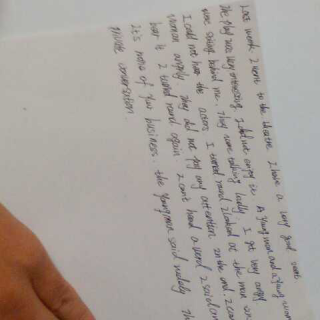 Last week I went to the theatre. I have a very good seat
The play was very interesting. I did not enjoy it. A young man and a young woman
were sitting behind me. They were talking loudly. I got very angry
I could not hear the actors. I turned round. I looked at the man and
woman angrily. They did not pay any attention. In the end, I could
bear it. I turned round again. I can't hear a word I said
It's none of your business. the young man said rudely
private conversation